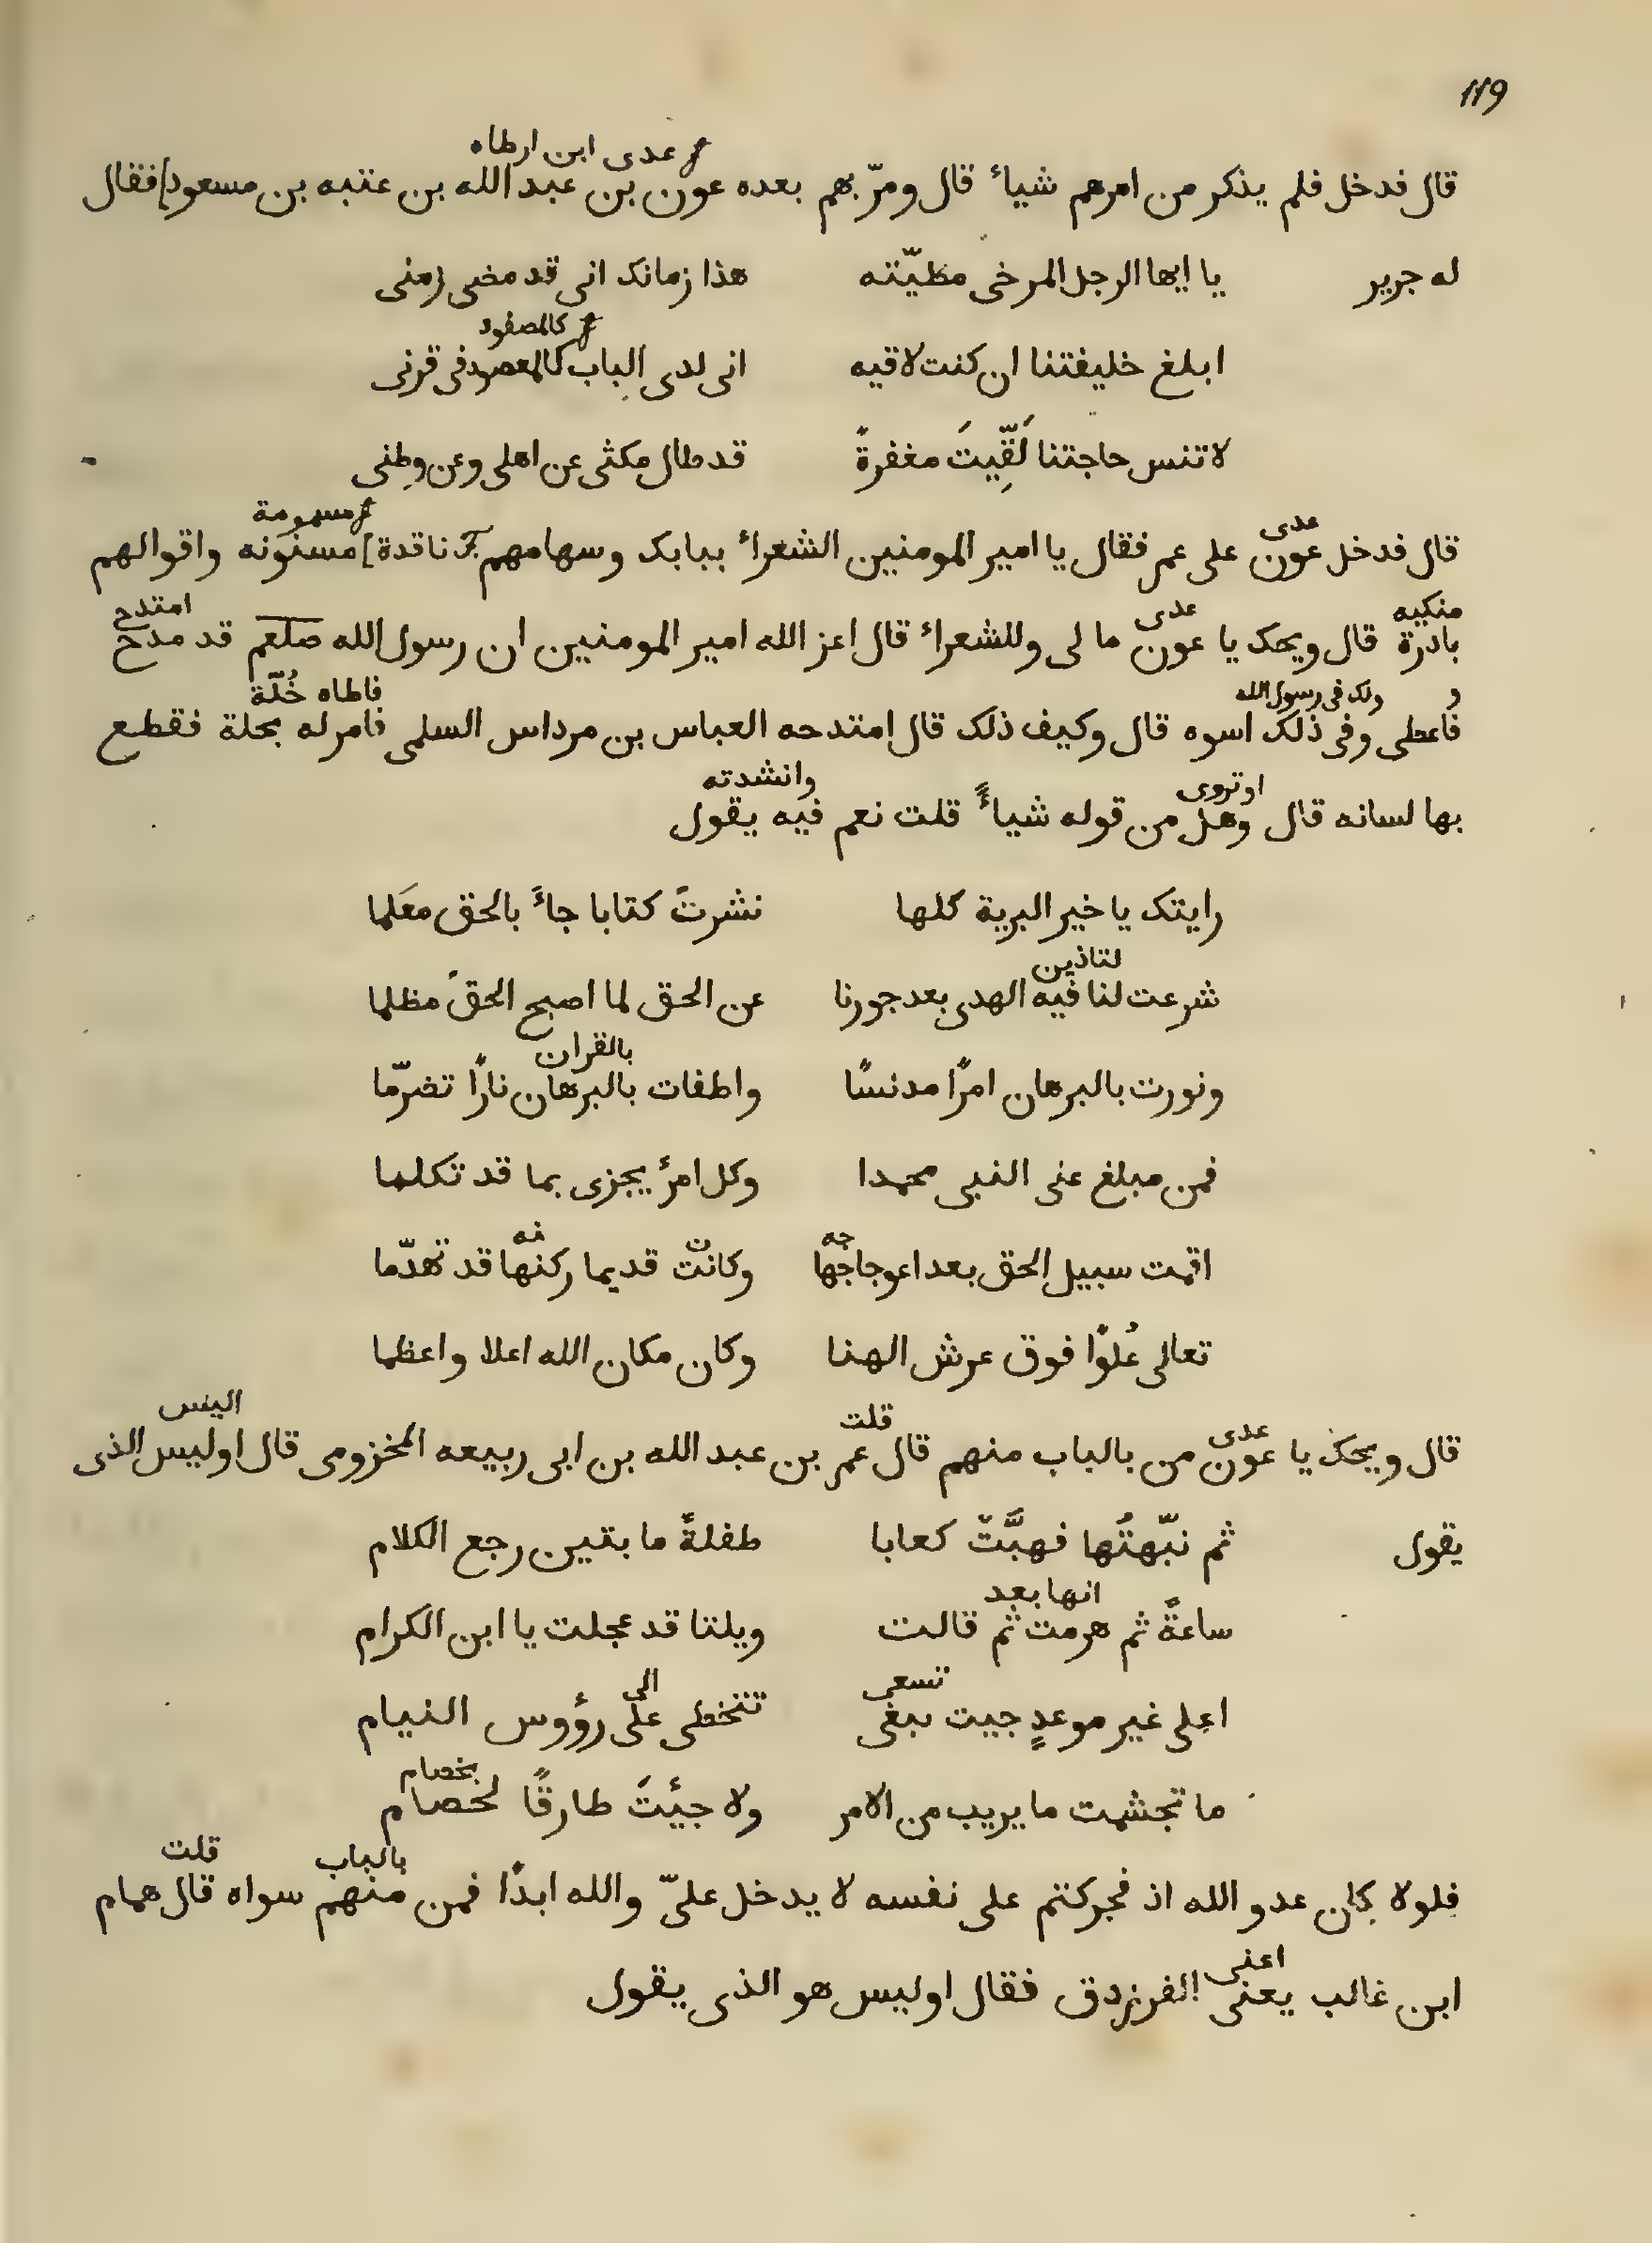 119
عدى ابن ارطاه
قال فدخل فلم يذكر من امرهم شياء قال ومرّ بهم بعده عون بن عبد الله بن عتبه بن مسعود] فقال
له جرير يا ايها الرجل المرخى مطيّته هذا زمانك انى قد مضى زمنى
كالمصفود
ابلغ خليفتنا ان كنت لاقيه انى لدى الباب كالمعصود فى قرنى
لا تنس حاجتنا لَقِّيتَ مغفرةً قد طال مكثى عن اهلى وعن وطنى
عدى مسمومة
قال فدخل عون على عمر فقال يا امير المومنين الشعراء ببابك وسهامهم ناقدة] مسنونه واقوالهم
منكيه عدى امتدح
بادرة قال ويحك يا عون ما لى وللشعراء قال اعز الله امير المومنين ان رسول الله صلعم قد مدح
و ولك فى رسول الله فاطاه حُلّة
فاعطى وفى ذلك اسوه قال وكيف ذلك قال امتدحه العباس بن مرداس السلمى فامر له بحلة فقطع
اوتروى وانشدته
بها لسانه قال وهل من قوله شياءً قلت نعم فيه يقول
رايتك يا خير البرية كلها نشرتَ كتابا جاءَ بالحق معَلما
لتاذين
شرعت لنا فيه الهدى بعد جورنا عن الحق لما اصبح الحقُ مظلما
بالقران
ونورت بالبرهان امرًا مدنسًا واطفات بالبرهان نارًا تضرّما
فمن مبلغ عنى النبى محمدا وكل امرءٍ يجزى بما قد تكلما
جه ن نه
اقمت سبيل الحق بعد اعوجاجها وكانت قديما ركنها قد تهدّما
تعالى عُلوًا فوق عرش الهنا وكان مكان الله اعلا واعظما
عدى قلت اليس
قال ويحك يا عون من بالباب منهم قال عمر بن عبد الله بن ابى ربيعه المخزومى قال اوليس الذى
يقول ثم نبّهتُها فهبَّتْ كعابا طفلةً ما بتين رجع الكلام
انها بعد
ساعةً ثم هرمت ثم قالت ويلتا قد عجلت يا ابن الكرام
تسعى الى
اعلى غير موعدٍ جيت تبغى تتخطى على رؤوس النيام
بخصام
ما تجشمت ما يريب من الامر ولا جيئتَ طارقًا لخصام
بالباب قلت
فلولا كان عدو الله اذ فجر كتم على نفسه لا يدخل علىّ والله ابدًا فمن منهم سواه قال همام
اعنى
ابن غالب يعنى الفرزدق فقال اوليس هو الذى يقول